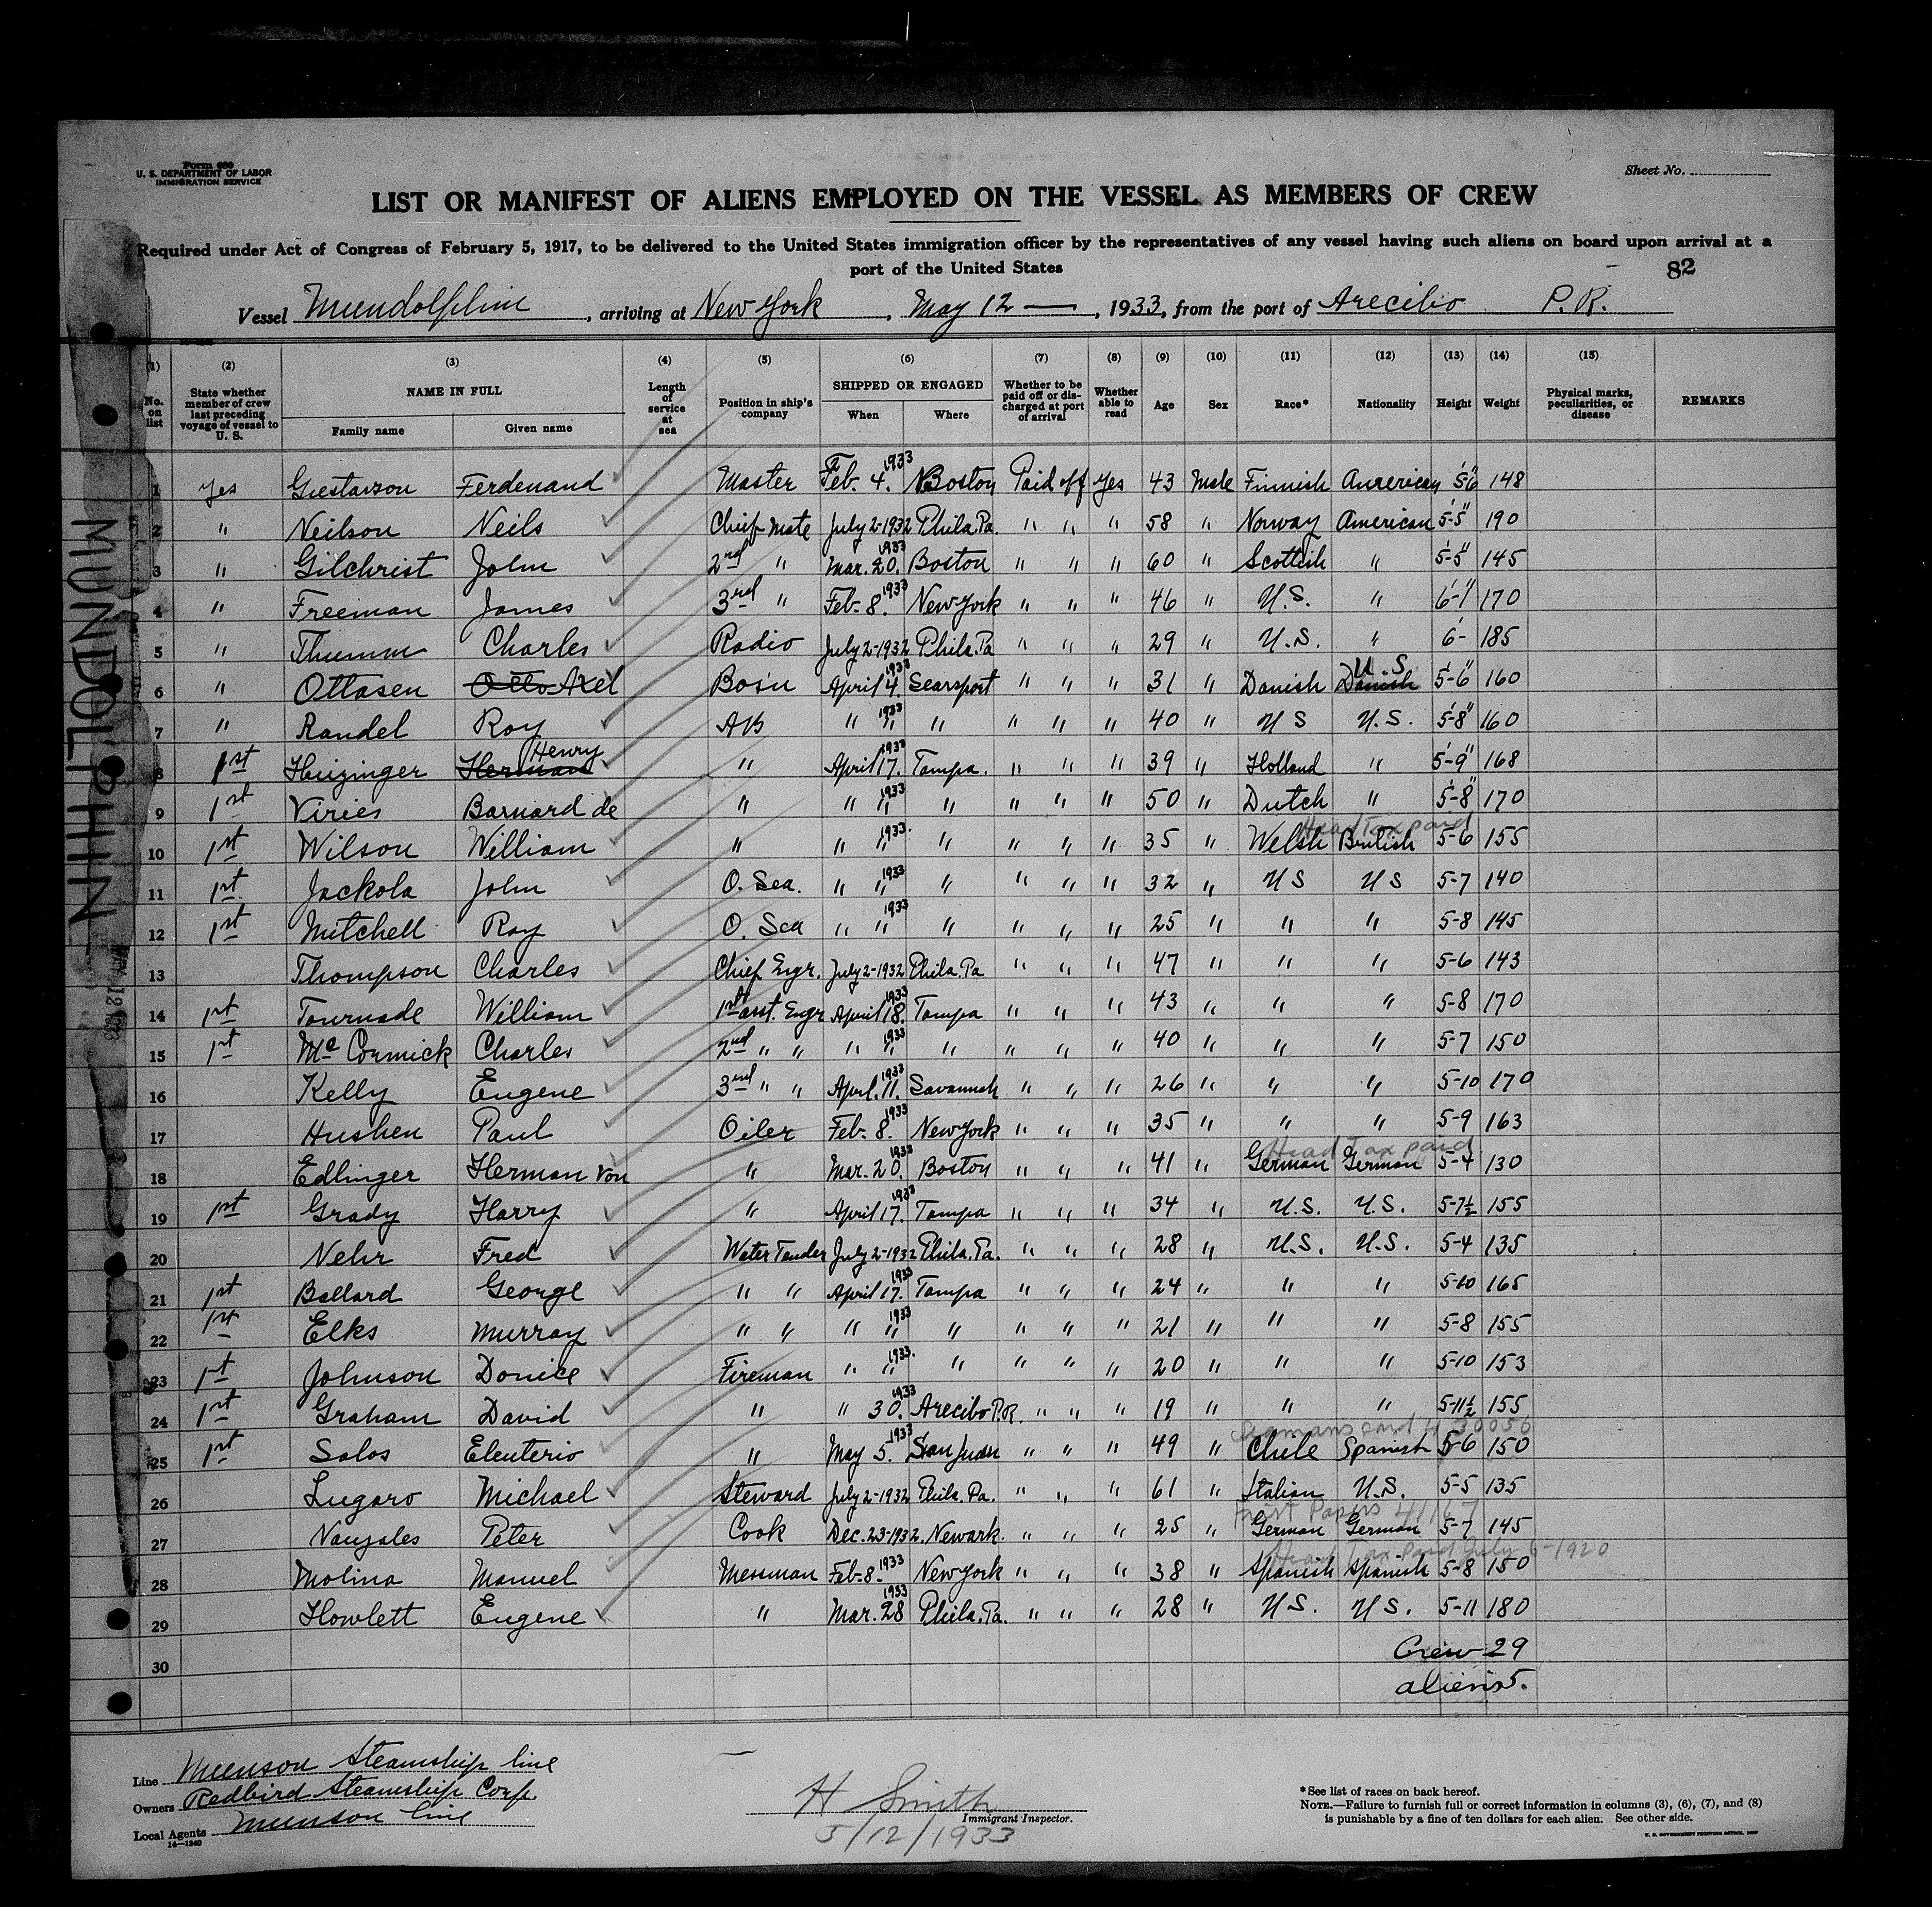 Form 680
U. S. DEPARTMENT OF LABOR
IMMIGRATION SERVICE
Sheet No.
LIST OR MANIFEST OF ALIENS EMPLOYED ON THE VESSEL AS MEMBERS OF CREW
Required under Act of Congress of February 5, 1917, to be delivered to the United States immigration officer by the representatives of any vessel having such aliens on board upon arrival at a
port of the United States
82
Vessel Mundolphin, arriving at New York, May 12 —, 1933, from the port of Arecibo P.R.
(1) (2) (3) (4) (5) (6) (7) (8) (9) (10) (11) (12) (13) (14) (15)
No. on list State whether member of crew last preceding voyage of vessel to U. S. NAME IN FULL Family name Given name Length of service at sea Position in ship's company SHIPPED OR ENGAGED When Where Whether to be paid off or discharged at port of arrival Whether able to read Age Sex Race* Nationality Height Weight Physical marks, peculiarities, or disease REMARKS
1 yes Gustavson Ferdenand Master Feb. 4. 1933 Boston Paid off yes 43 Male Finnish American 5'6" 148
2 " Neilson Neils Chief Mate July 2-1932 Phila. Pa. " " " 58 " Norway American 5-5" 190
3 " Gilchrist John 2nd " Mar. 20. 1933 Boston " " " 60 " Scottish " 5-5" 145
4 " Freeman James 3rd " Feb. 8. 1933 New York " " " 46 " U.S. " 6-1" 170
5 " Thumm Charles Radio July 2-1932 Phila. Pa " " " 29 " U.S. " 6- 185
6 " Ottasen Otto Axel Bos'n April 4. 1933 Searsport " " " 31 " Danish Danish U.S 5-6" 160
7 " Randel Roy AB " " 1933 " " " " 40 " U S U.S. 5-8" 160
8 1st Huizinger Herman Henry " April 17. 1933 Tampa. " " " 39 " Holland " 5-9" 168
9 1st Viries Barnard de " " " 1933 " " " " 50 " Dutch " 5-8" 170
Head Tax paid
10 1st Wilson William " " " 1933. " " " " 35 " Welsh British 5-6 155
11 1st Jackola John O. Sea. " " 1933 " " " " 32 " U S U S 5-7 140
12 1st Mitchell Roy O. Sea " " 1933 " " " " 25 " " " 5-8 145
13 Thompson Charles Chief Engr. July 2-1932 Phila. Pa " " " 47 " " " 5-6 143
14 1st Tournade William 1st asst. Engr April 18. 1933 Tampa " " " 43 " " " 5-8 170
15 1st Mc Cormick Charles 2nd " " " " 1933 " " " " 40 " " " 5-7 150
16 Kelly Eugene 3rd " " April. 11. 1933 Savannah " " " 26 " " " 5-10 170
17 Hushen Paul Oiler Feb. 8. 1933 New York " " " 35 " " " 5-9 163
Head Tax paid
18 Edlinger Herman Von " Mar. 20. 1933 Boston " " " 41 " German German 5-4 130
19 1st Grady Harry " April 17. 1933 Tampa " " " 34 " U.S. U.S. 5-7½ 155
20 Nehr Fred Water Tender July 2-1932 Phila. Pa. " " " 28 " U.S. U.S. 5-4 135
21 1st Ballard George " " April 17. 1933 Tampa " " " 24 " " " 5-10 165
22 1st Elks Murray " " " " 1933 " " " " 21 " " " 5-8 155
23 1st Johnson Donice Fireman " " 1933. " " " " 20 " " " 5-10 153
24 1st Graham David " " 30. 1933 Arecibo P.R. " " " 19 " " " 5-11½ 155
Seamans card
25 1st Salos Eleuterio " May 5. 1933 San Juan " " " 49 " Chile Spanish 5-6 150
26 Lugaro Michael Steward July 2-1932 Phila. Pa. " " " 61 " Italian U.S. 5-5 135
First Papers 41167
27 Naujales Peter Cook Dec. 23-1932. Newark. " " " 25 " German German 5-7 145
Head Tax Paid July 6-1920
28 Molina Manuel Messman Feb-8. 1933 New York " " " 38 " Spanish Spanish 5-8 150
29 Howlett Eugene " Mar. 28 1933 Phila. Pa. " " " 28 " U.S. U.S. 5-11 180
Crew 29
30
aliens 5.
MUNDOLPHIN
MAY 12 1933
Line Munson Steamship line
Owners Redbird Steamship Corp.
Local Agents Munson line
14—1240
H Smith
Immigrant Inspector.
5/12/1933
*See list of races on back hereof.
NOTE.—Failure to furnish full or correct information in columns (3), (6), (7), and (8)
is punishable by a fine of ten dollars for each alien. See other side.
U. S. GOVERNMENT PRINTING OFFICE